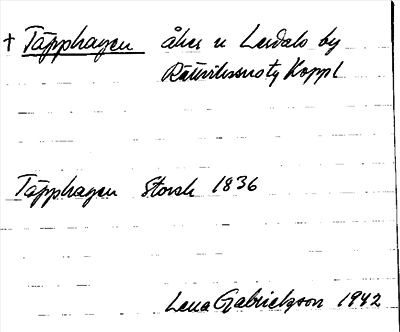 † Täpphagen åker u Lerdala by
Koppl
Täpphagen Storsk 1836
Lena Gabrielsson 1942